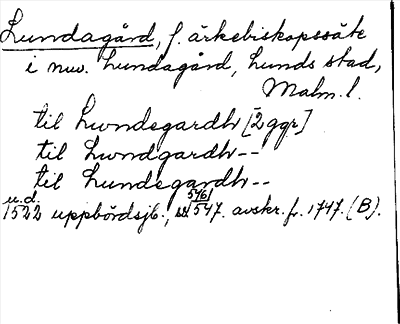 Lundagård, f. ärkebiskopssäte
i nuv. Lundagård, Lunds stad,
Malm. l.
til Lwndegardh [2 ggr]
til Lwndgardh--
til Lundegardh--
u.d.
1522 uppbördsjb., 1547. avskr. fr. 1747. (B).